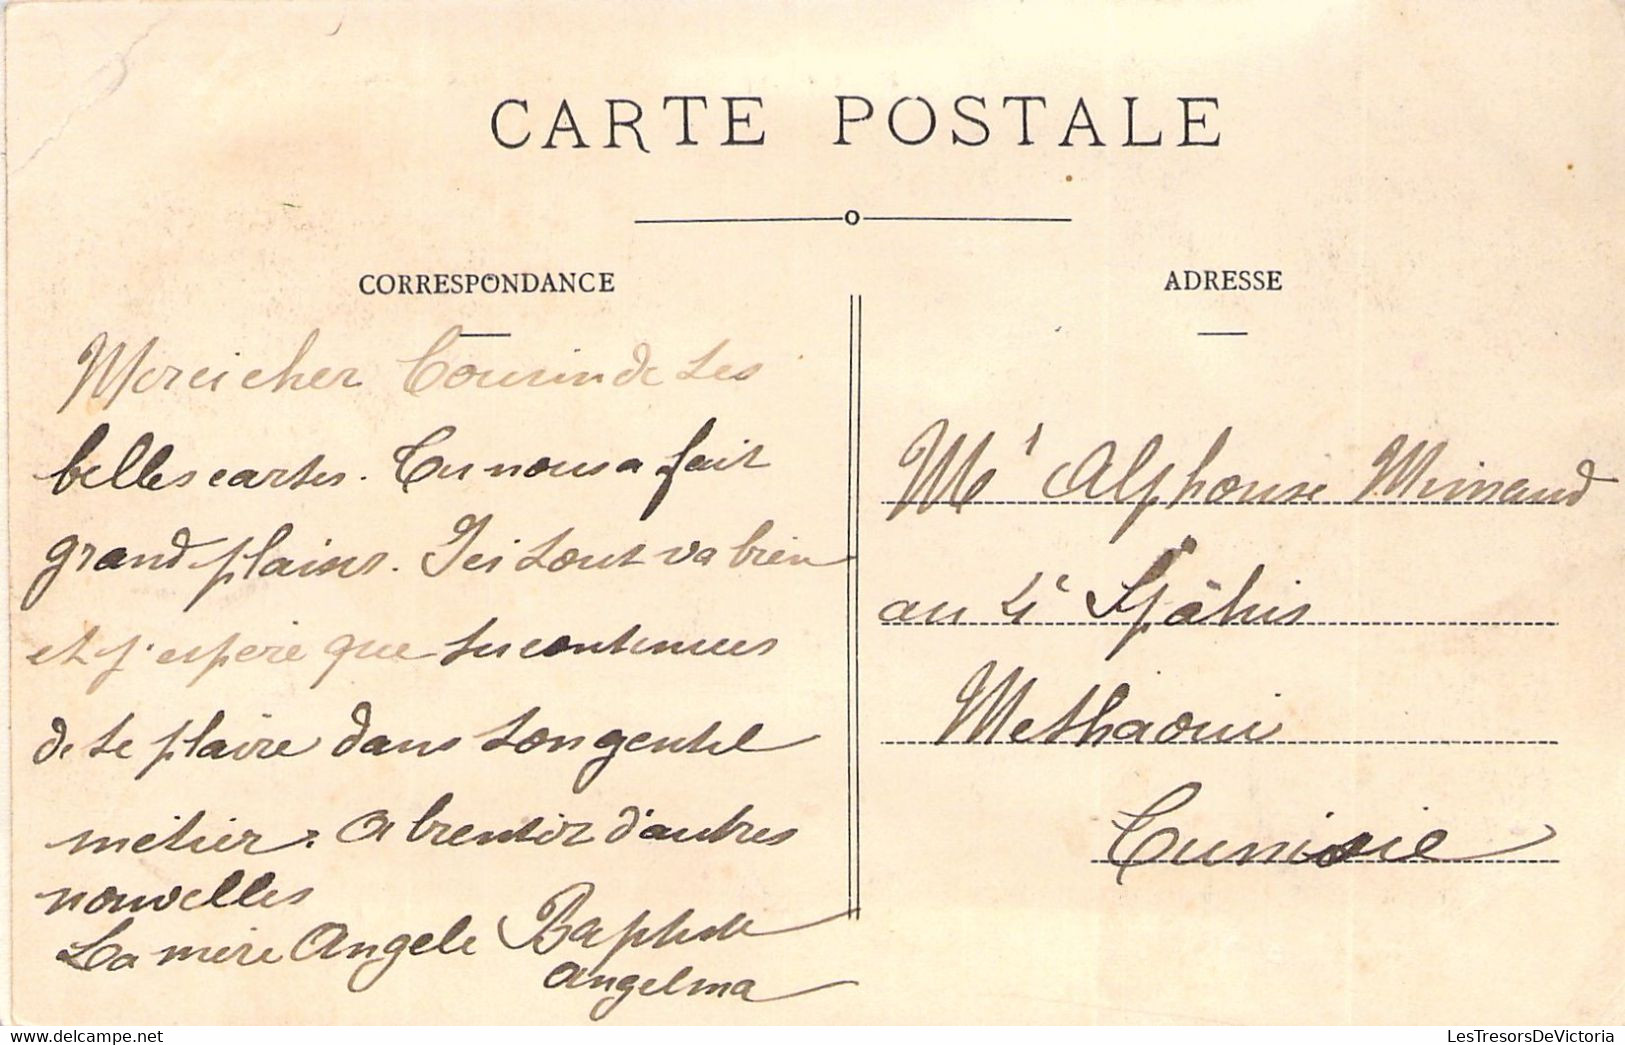 CARTE POSTALE
CORRESPONDANCE
Merci cher Cousin de tes
belles cartes. Tu nous a fait
grand plaisir. Ici tout va bien
et j'espère que tu continues
de te plaire dans ton gentil
métier. A bientôt d'autres
nouvelles
La mère Angele Baptiste
Angelma
ADRESSE
Mr Alphonse Mimaud
au 4e Spâhis
Methaoui
Tunisie
LesTresorsDeVictoria